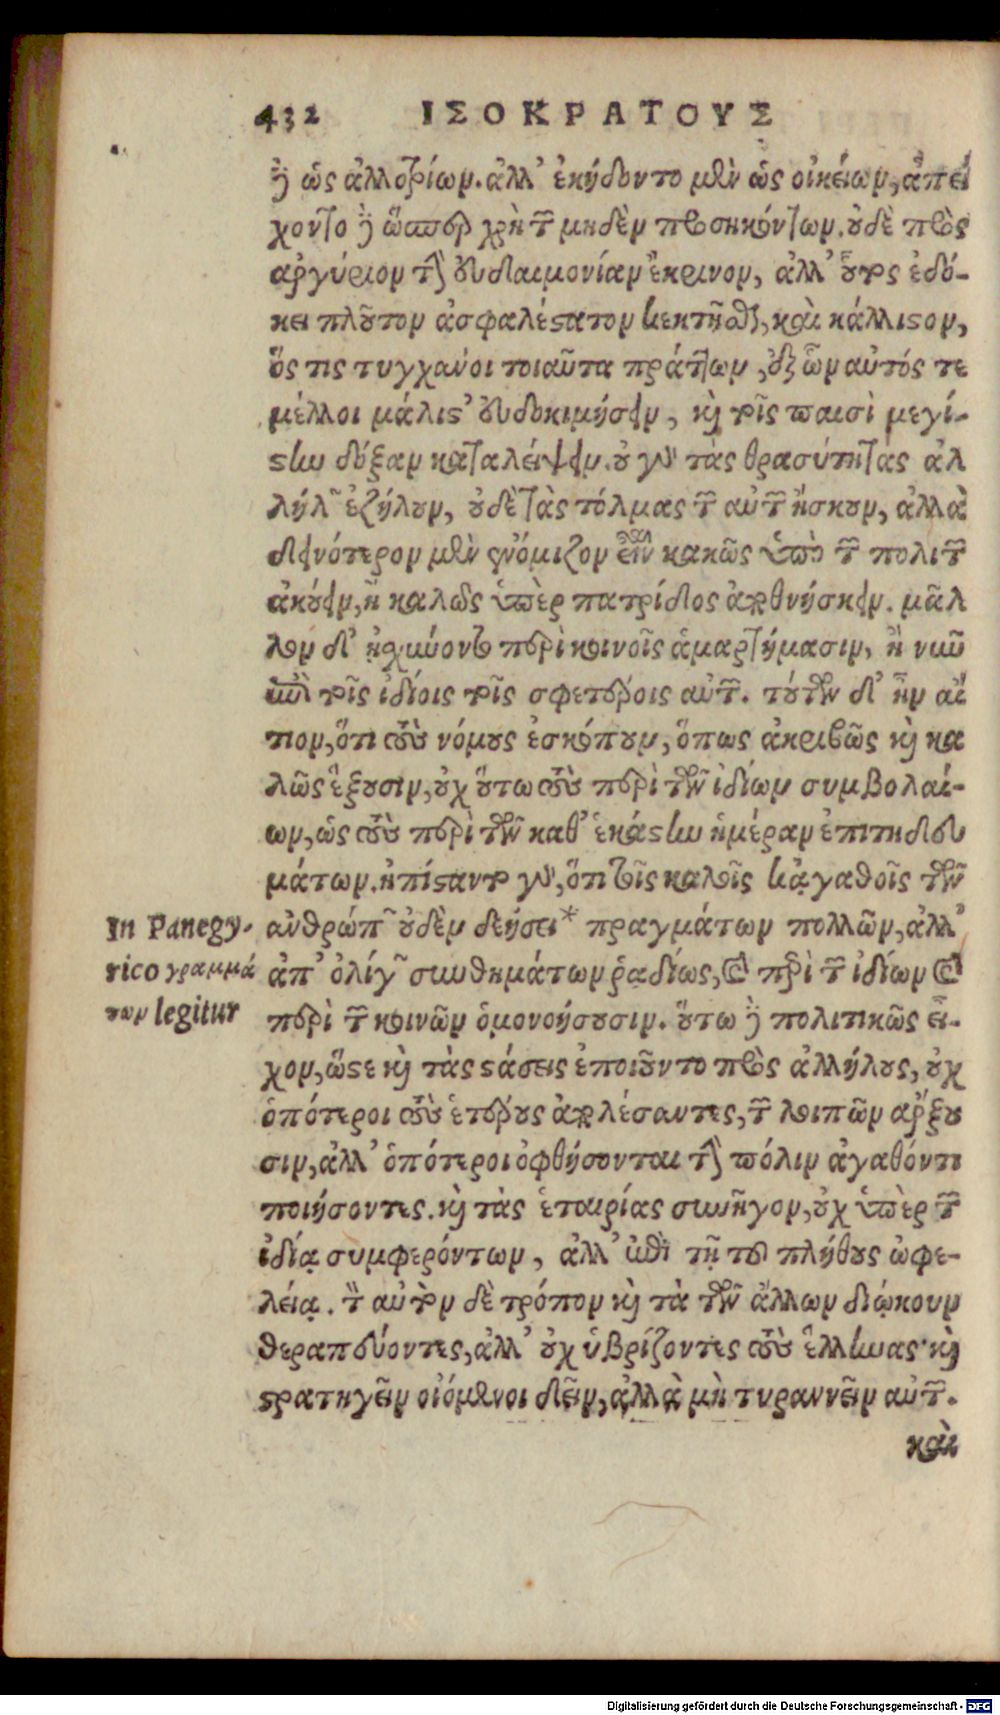 432 ΙΣΟΚΡΑΤΟΥΣ
δ' ὡς ἀλλοτρίων. ἀλλ' ἐκήδοντο μὲν ὡς οἰκείων, ἀπεί
χοντο δ' ὥσπερ χρὴ τῶν μηδὲν προσηκόντων. οὐδὲ πρὸς
ἀργύριον τὴν εὐδαιμονίαν ἔκρινον, ἀλλ' οὗτος ἐδό-
κει πλοῦτον ἀσφαλέστατον κεκτῆσθαι, καὶ κάλλιστον,
ὅς τις τυγχάνοι τοιαῦτα πράττων, ἐξ ὧν αὐτός τε
μέλλοι μάλιστ' εὐδοκιμήσειν, καὶ τοῖς παισὶ μεγί-
στην δόξαν καταλείψειν. οὐ γὰρ τὰς θρασύτητας ἀλ
λήλων ἐζήλουν, οὐδὲ τὰς τόλμας τὰς αὐτῶν ἤσκουν, ἀλλὰ
δεινότερον μὲν ἐνόμιζον εἶναι κακῶς ὑπὸ τῶν πολιτῶν
ἀκούειν, ἢ καλῶς ὑπὲρ πατρίδος ἀποθνήσκειν. μᾶλ
λον δ' ᾐσχύνοντο περὶ κοινοῖς ἁμαρτήμασιν, ἢ νῦν
ἐπὶ τοῖς ἰδίοις τοῖς σφετέροις αὐτῶν. τούτων δ' ἦν αἴ
τιον, ὅτι τοὺς νόμους ἐσκόπουν, ὅπως ἀκριβῶς καὶ κα
λῶς ἕξουσιν, οὐχ οὕτω τοὺς περὶ τῶν ἰδίων συμβολαί-
ων, ὡς τοὺς περὶ τῶν καθ' ἑκάστην ἡμέραν ἐπιτηδευ
μάτων. ἠπίσταντο γὰρ, ὅτι τοῖς καλοῖς κἀγαθοῖς τῶν
In Panegy-
rico γραμμά
των legitur
ἀνθρώπων οὐδὲν δεήσει* πραγμάτων πολλῶν, ἀλλ'
ἀπ' ὀλίγων συνθημάτων ῥᾳδίως, καὶ περὶ τῶν ἰδίων καὶ
περὶ τῶν κοινῶν ὁμονοήσουσιν. οὕτω δὲ πολιτικῶς εἶ-
χον, ὥστε καὶ τὰς στάσεις ἐποιοῦντο πρὸς ἀλλήλους, οὐχ
ὁπότεροι τοὺς ἑτέρους ἀπολέσαντες, τῶν λοιπῶν ἄρξου
σιν, ἀλλ' ὁπότεροι ὀφθήσονται τὴν πόλιν ἀγαθόν τι
ποιήσοντες. καὶ τὰς ἑταιρίας συνῆγον, οὐχ ὑπὲρ τῶν
ἰδίᾳ συμφερόντων, ἀλλ' ἐπὶ τῇ τοῦ πλήθους ὠφε-
λείᾳ. τὸν αὐτὸν δὲ τρόπον καὶ τὰ τῶν ἄλλων διῴκουν
θεραπεύοντες, ἀλλ' οὐχ ὑβρίζοντες τοὺς ἕλληνας· καὶ
στρατηγεῖν οἰόμενοι δεῖν, ἀλλὰ μὴ τυραννεῖν αὐτῶν.
καὶ
Digitalisierung gefördert durch die Deutsche Forschungsgemeinschaft - DFG